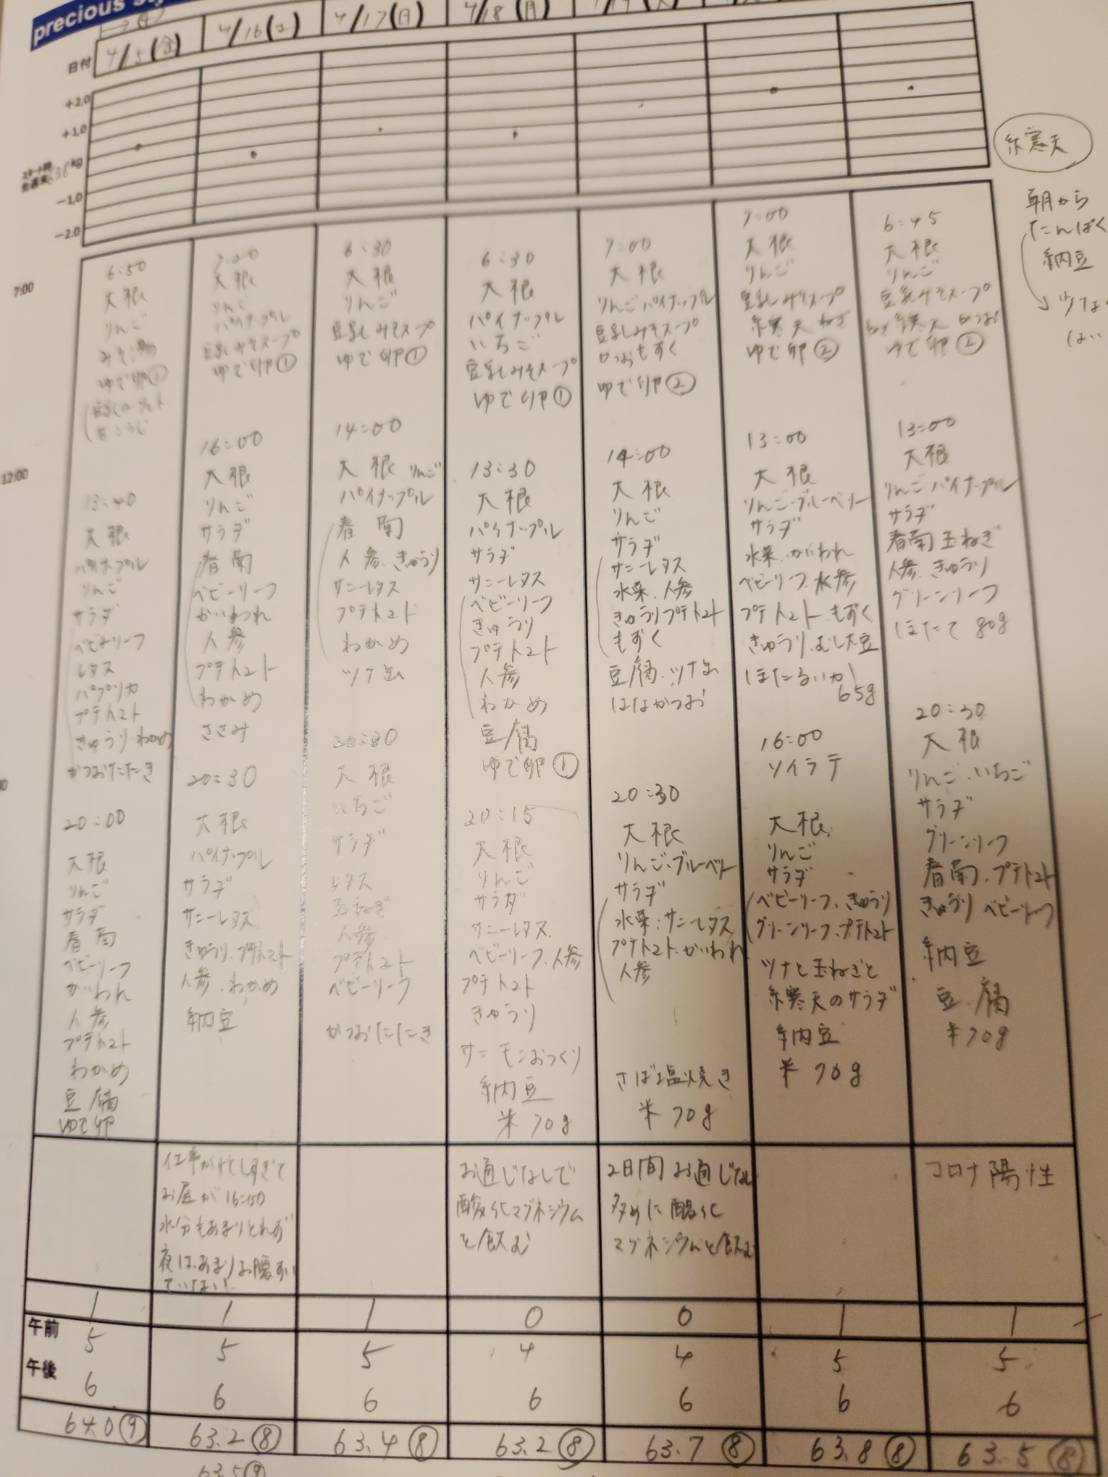 precious
日付
4/16(土)
4/17(日)
4/18(月)
+2.0
+1.0
kg
-1.0
-2.0
糸寒天
朝から
たんぱく
納豆
7:00
12:00
6:50
大根
りんご
みそ湯
ゆで卵①
13:40
大根
パイナップル
りんご
サラダ
ベビーリーフ
レタス
パプリカ
プチトマト
きゅうり わかめ
かつおたたき
20:00
大根
りんご
サラダ
春菊
ベビーリーフ
かいわれ
人参
プチトマト
わかめ
豆腐
ゆで卵
大根
りんご
パイナップル
豆乳みそスープ
ゆで卵①
16:00
大根
りんご
サラダ
春菊
ベビーリーフ
かいわれ
人参
プチトマト
わかめ
ささみ
20:30
大根
パイナップル
サラダ
サニーレタス
きゅうり・プチトマト
人参・わかめ
納豆
6:30
大根
りんご
豆乳みそスープ
ゆで卵①
14:00
大根 りんご
パイナップル
春菊
人参・きゅうり
サニーレタス
プチトマト
わかめ
ツナ缶
大根
いちご
サラダ
レタス
玉ねぎ
人参
プチトマト
ベビーリーフ
かつおたたき
6:30
大根
パイナップル
いちご
豆乳みそスープ
ゆで卵①
13:30
大根
パイナップル
サラダ
サニーレタス
ベビーリーフ
きゅうり
プチトマト
人参
わかめ
豆腐
ゆで卵①
20:15
大根
りんご
サラダ
サニーレタス
ベビーリーフ・人参
プチトマト
きゅうり
サーモンおつくり
納豆
米70g
7:00
大根
りんご・パイナップル
豆乳みそスープ
かつおもずく
ゆで卵②
14:00
大根
りんご
サラダ
サニーレタス
水菜・人参
きゅうりプチトマト
もずく
豆腐・ツナ缶
はなかつお
20:30
大根
りんご・ブルーベリー
サラダ
水菜・サニーレタス
プチトマト・かいわれ
人参
さば塩焼き
米70g
7:00
大根
りんご
豆乳みそスープ
糸寒天 ねぎ
ゆで卵②
13:00
大根
りんご・ブルーベリー
サラダ
水菜・かいわれ
ベビーリーフ・人参
プチトマト・もずく
きゅうり・むし大豆
ほたるいか
65g
16:00
ソイラテ
大根
りんご
サラダ
ベビーリーフ・きゅうり
グリーンリーフ・プチトマト
ツナと玉ねぎと
糸寒天のサラダ
納豆
米70g
6:45
大根
りんご
豆乳みそスープ
糸寒天 かつお
ゆで卵②
13:00
大根
りんご パイナップル
サラダ
春菊 玉ねぎ
人参・きゅうり
グリーンリーフ
ほたて 80g
20:30
大根
りんご・いちご
サラダ
グリーンリーフ
春菊・プチトマト
きゅうり ベビーリーフ
納豆
豆腐
米70g
仕事が忙しすぎて
お昼が16:00
水分もあまりとれず
夜はあまりお腹すい
ていない
お通じなしで
酸化マグネシウム
を飲む
2日間お通じなし
多めに酸化
マグネシウムを飲む
コロナ陽性
1 1 1 0 0 1 1
午前 5 5 5 4 4 5 5
午後 6 6 6 6 6 6 6
64.0⑨ 63.2⑧ 63.4⑧ 63.2⑧ 63.7⑧ 63.8⑧ 63.5⑧
63.5⑨